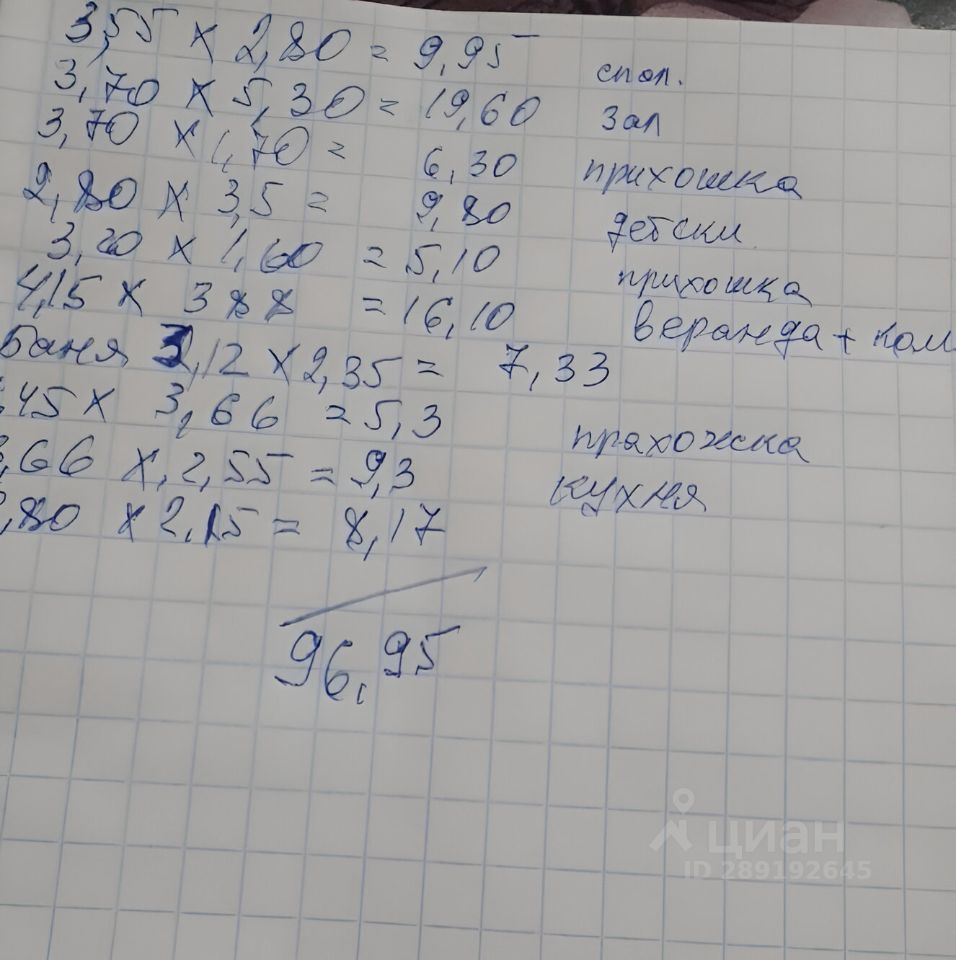 3,55 x 2,80 = 9,95 спал.
3,70 x 5,30 = 19,60 зал
3,70 x 1,70 = 6,30 прихошка
2,80 x 3,5 = 9,80 детски
3,20 x 1,60 = 5,10 прихошка
4,15 x 3 8 8 = 16,10 веранда + ком
баня 3,12 x 2,35 = 7,33
,45 x 3,66 = 5,3 прахожска
,66 x 2,55 = 9,3 кухня
,80 x 2,15 = 8,17
96,95
циан
ID 289192645